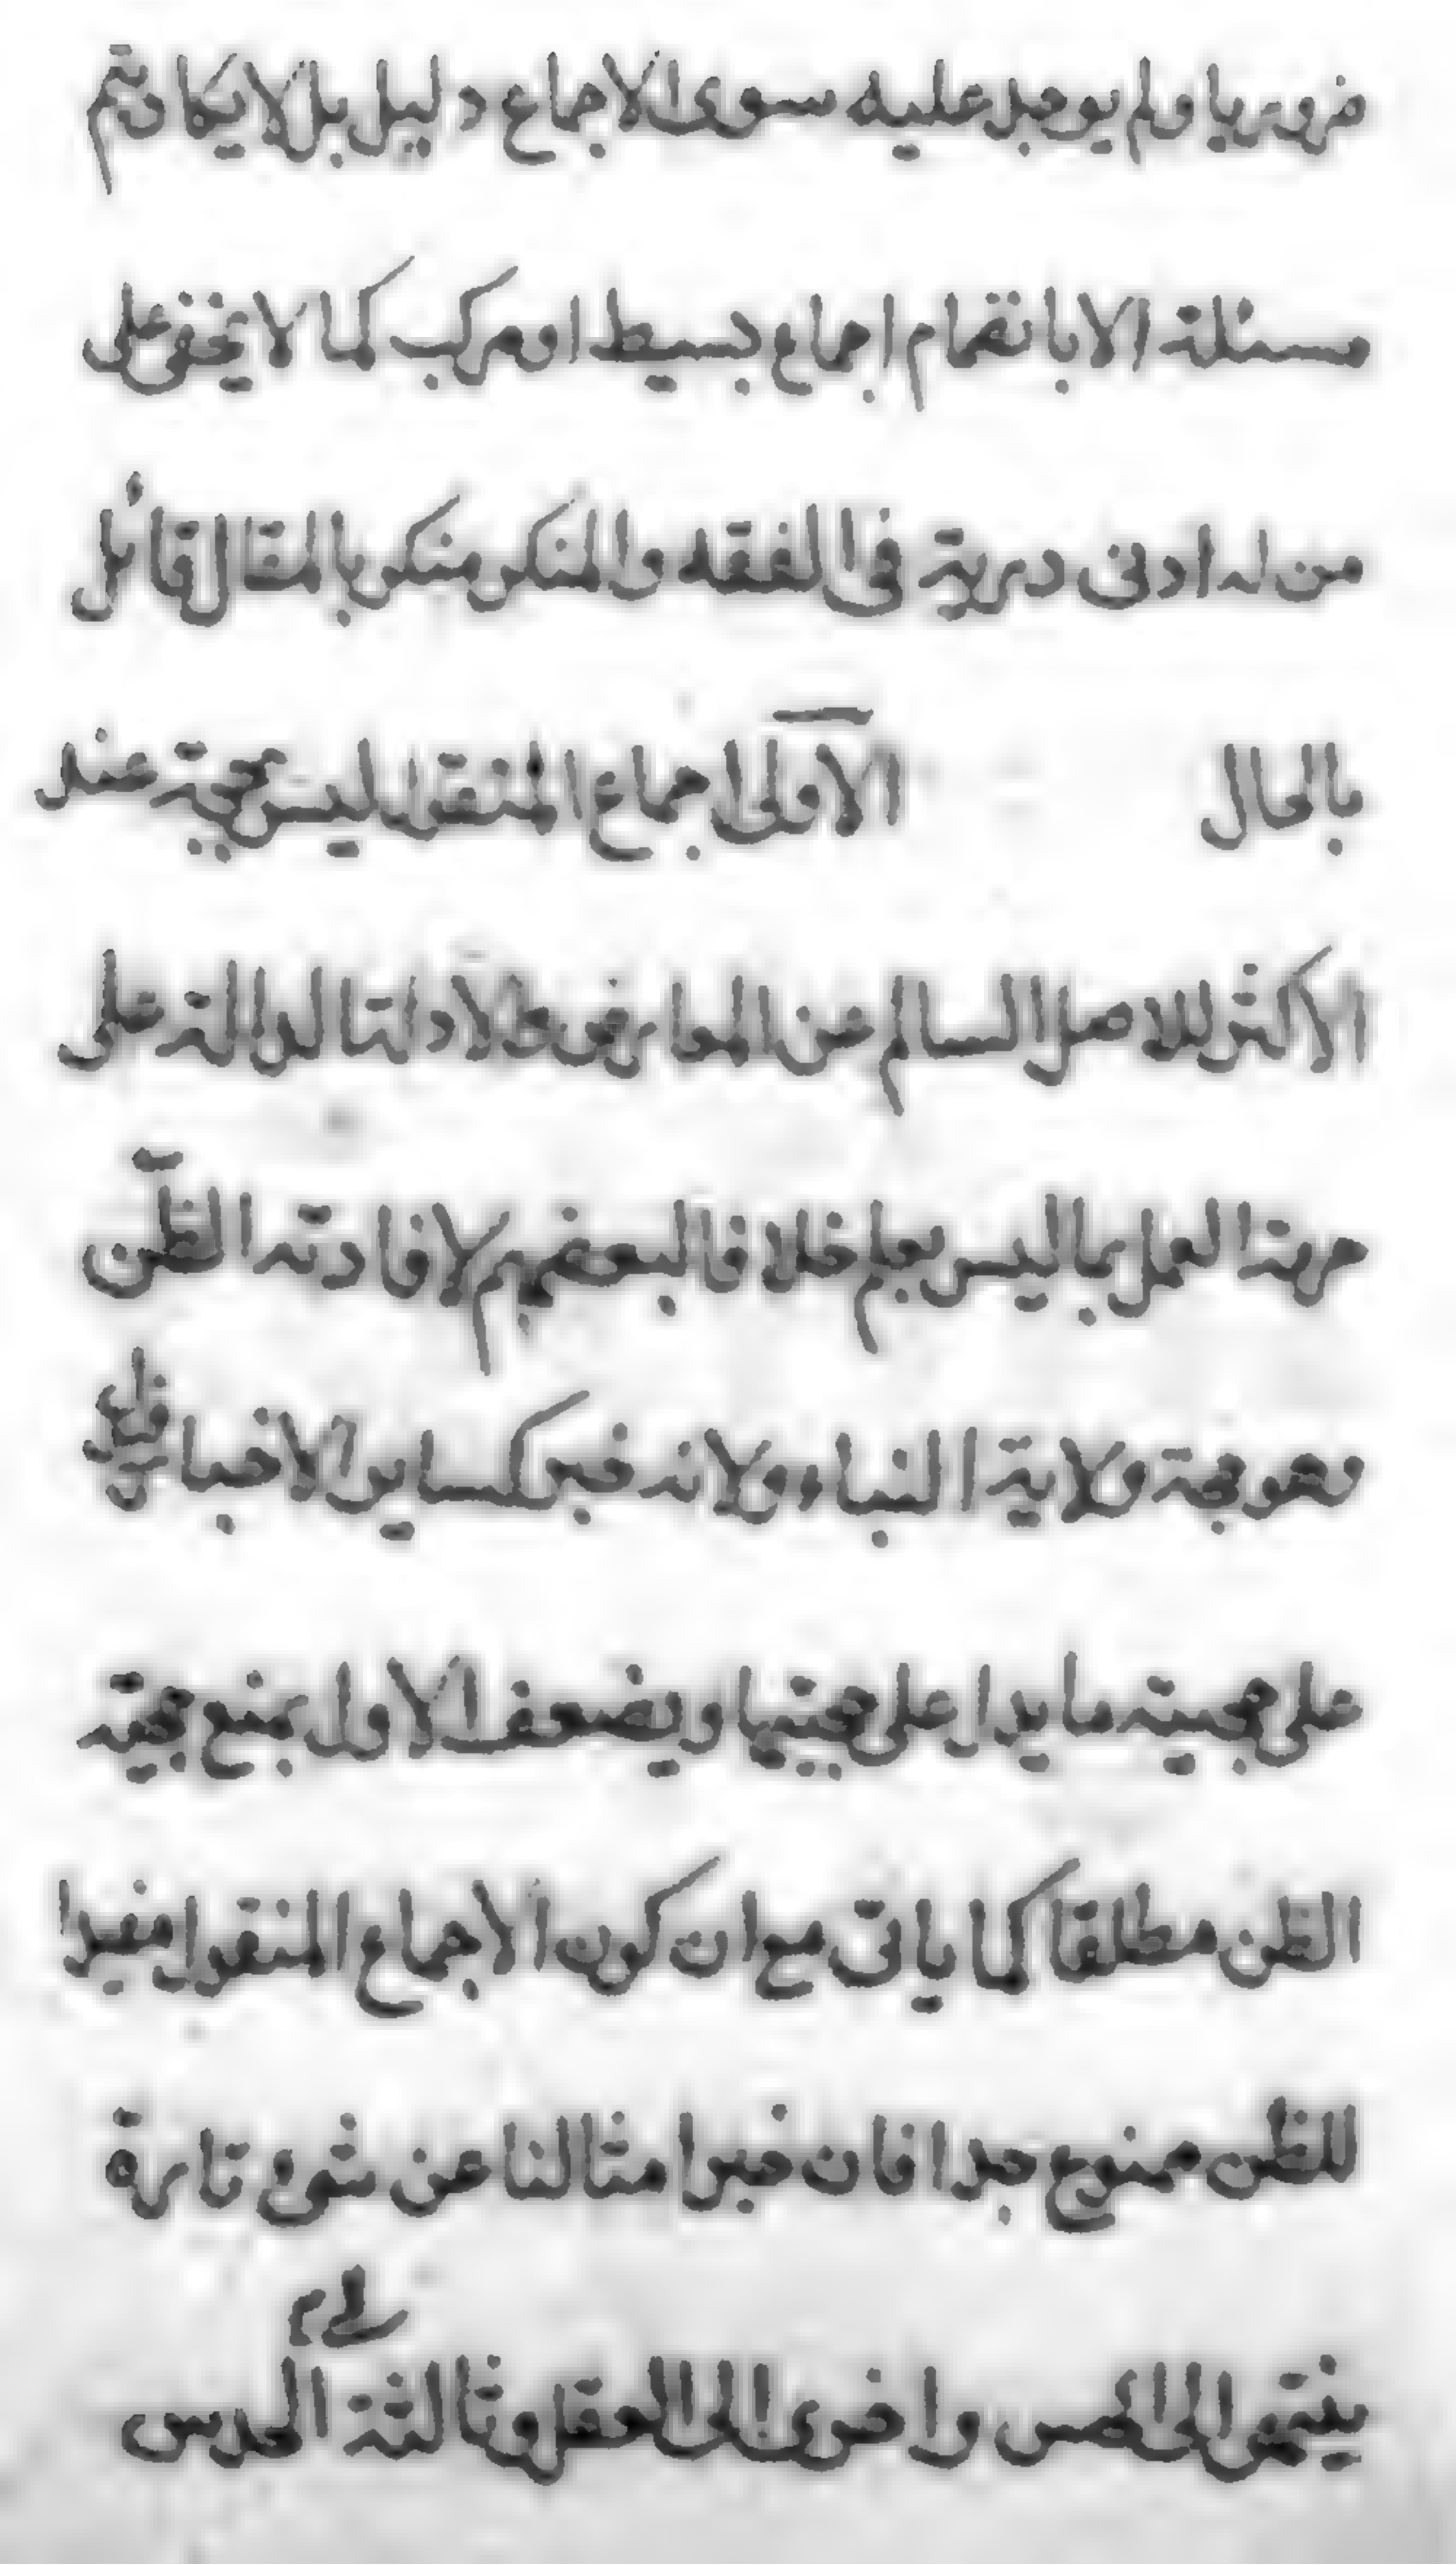 ضروريا ولم يوجد عليه سوى الاجماع دليل بل لا يكاد تتم
مسئلة الا بانضمام اجماع بسيط او مركب كما لا يخفى على
من له ادنى دربة فى الفقه والمنكر منكر بالمقال قائل
بالحال الاولى اجماع المنقول ليس بحجية عند
الاكثر للاصل السالم عن المعارض وللادلة الدالة على
حرمة العمل بما ليس بعلم خلافا لبعضهم لافادته الظن
وهو حجة ولاية النباء ولانه خبر كساير الاخبار فيدل
على حجيته ما يدل على حجيتها ويضعف الاول بمنع حجية
الظن مطلقا كما ياتى مع ان كون الاجماع المنقول مفيدا
للظن ممنوع جدا فان خبر امثالنا عن شىء تارة
ينتهى الى الحس واخرى الى العقل وثالثة الى الحدس